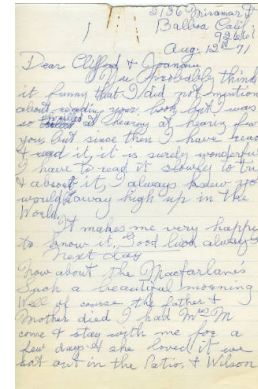 2136 Miramar Dr
Balboa Calif
92661
Aug. 12th 71
Dear Clifford & Joanna
You probably think
it funny that I did not mention
about reading your book but I was
so at hearing from
you but since then I have read
& read it, it is surely wonderful
I have to read it slowly to
& absorb it, I always knew you
would away high up in the
World,
It makes me very happy
to know it, Good luck always
Next day
now about the Macfarlanes
Such a beautiful morning
Well of course the father &
Mother died I had Mrs M
come & stay with me for a
few days & she loved it we
sat out in the Patio & Wilson